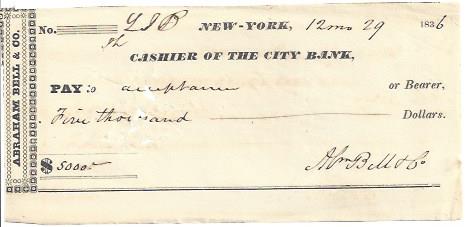 ABRAHAM BELL & CO.
No. LIB NEW-YORK, 12 mo 29 1836
Th
CASHIER OF THE CITY BANK,
PAY to acceptance or Bearer,
Five thousand Dollars.
$ 5000 Abm Bell & Co